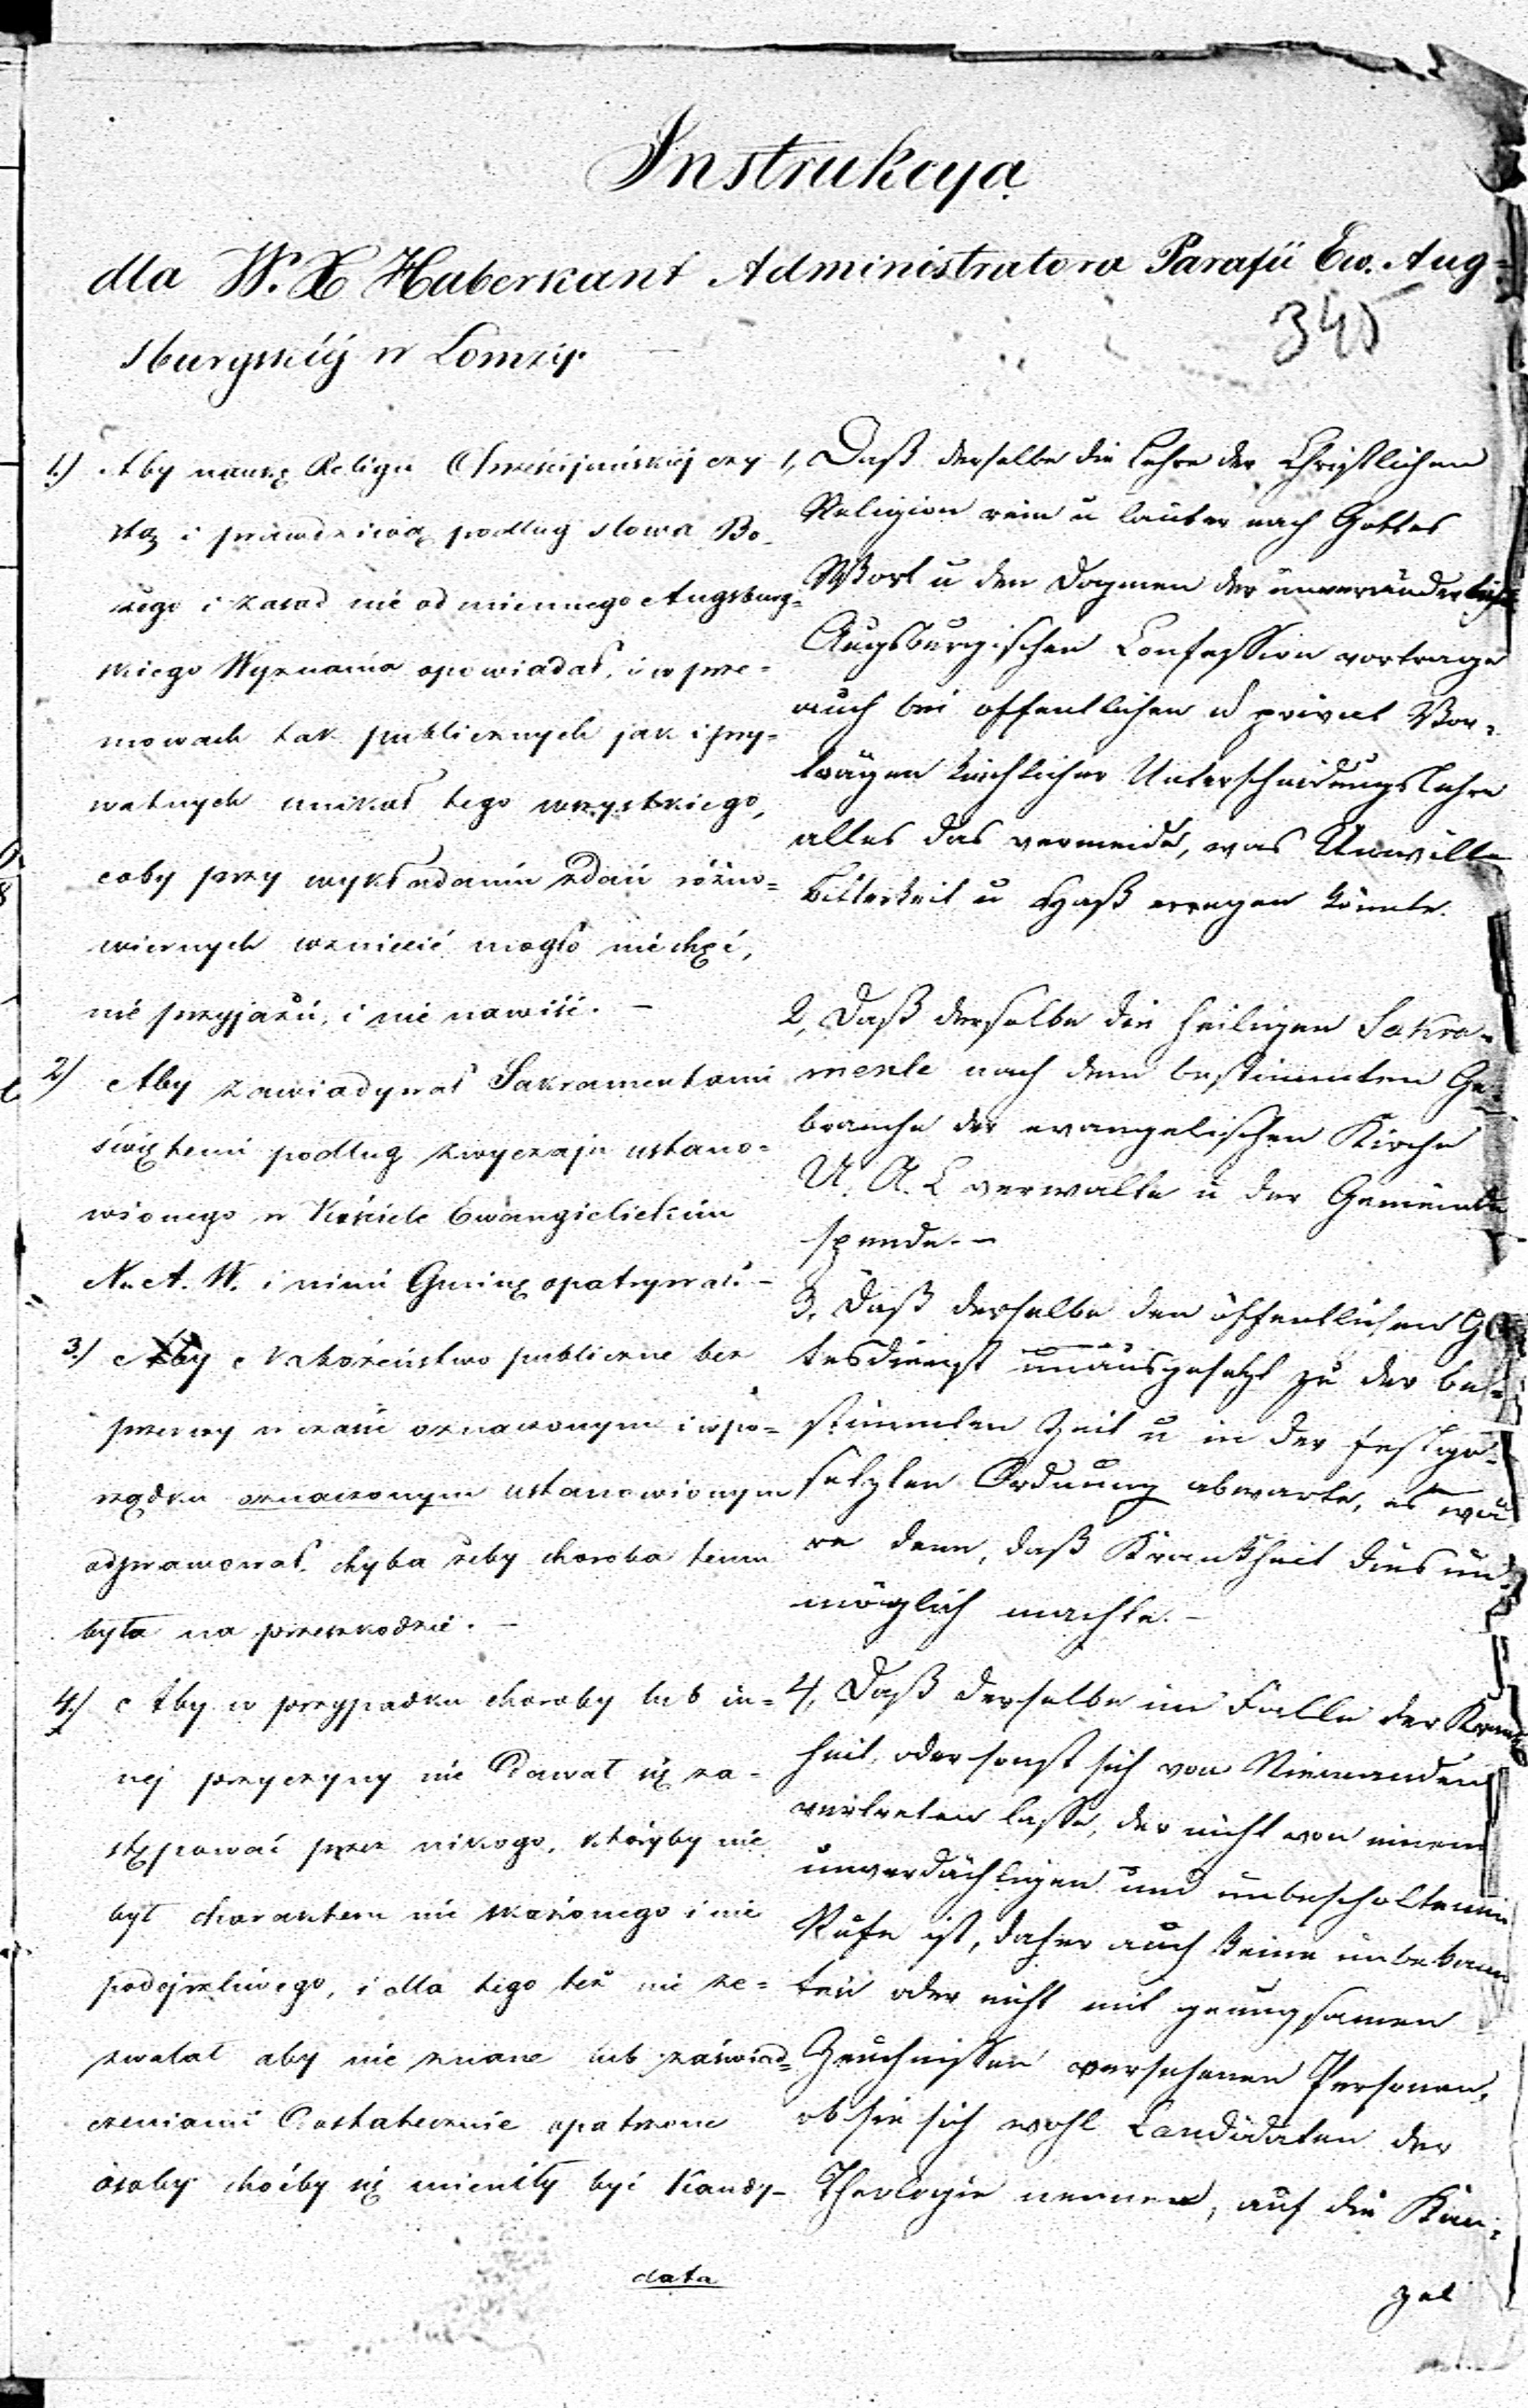 Instrukcya
dla W. X Haberkant Administratora Parafii Ew. Aug-
sburgskiéj w Lomży.
345
1.) Aby naukę Religii Chrześcijańskiéj czy-
stą i prawdziwą podług słowa Bo-
żego i zasad nie odmiennego Augsburg-
skiego Wyznania opowiadał, i w prze-
mowach tak publicznych jak i pry-
watnych unikał tego wszystkiego,
coby przy wykładaniu zdań różno-
wiernych wzniecić mogło niechęć,
nie przyjaźń, i nie nawiść. —
2) Aby zawiadywał Sakramentami
świętemi podług zwyczaju ustano-
wionego w Kościele Ewangielickim
N. A. W. i nimi Gminę opatrywał. —
3.) Aby Nabożeństwo publiczne bez
przerwy w czasie oznaczonym i w po-
rządku oznaczonym ustanowionym
odprawował, chyba żeby choroba temu
była na przeszkodzie. —
4.) Aby w przypadku choroby lub in-
nej przyczyny nie dawał się za-
stępować przez nikogo, któryby nie
był charakteru nie skażonego i nie
podejrzliwego, i dla tego też nie ze-
zwalał aby nie znane lub zaświad-
czeniami dostatecznie opatrzone
osoby choćby się mieniły być Kandy-
data
1, Daß derselbe die Lehre der Christlichen
Religion rein u lauter nach Gottes
Wort u den Dogmen der unveränderlichen
Augsburgischen Confession vortrage
auch bei offentlichen u privat Vor-
trägen kirchlicher Unterscheidungslehre
alles das vermeide, was Unwille
Bitterkeit u Haß erregen könnte.
2, Daß derselbe die heiligen Sakra-
mente nach dem bestimmten Ge-
brauche der evangelischen Kirche
U. A. C verwalte u der Gemeinde
spende. —
3, Daß derselbe den öffentlichen Got
tesdienst unausgesetzt zu der be-
stimmten Zeit u in der festge-
setzten Ordnung abwarte, es wä
re denn, daß Krankheit dies un
möglich machte. —
4, Daß derselbe im Falle der Krank
heit, oder sonst sich von Niemanden
vertreten lasse, der nicht von einem
unverdächtigen und unbescholtenen
Rufe ist, daher auch keine unbekann
ten oder nicht mit genugsamen
Zeuchnissen versehenen Personen,
ob sie sich wohl Candidaten der
Theologie nennen, auf die Kan-
zel